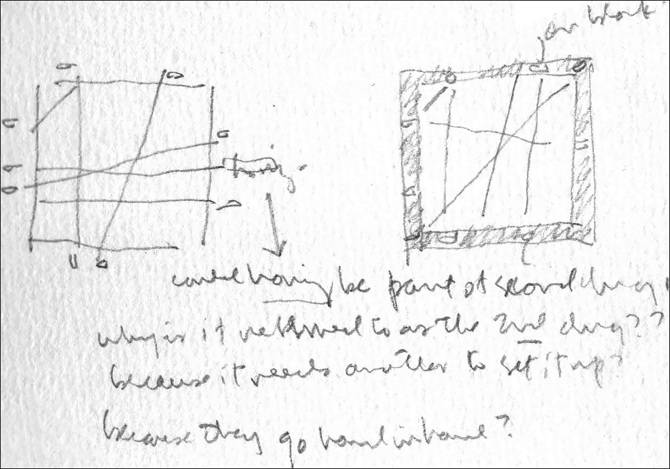 on black
could hanging be part of second drwg.
why is it referred to as the 2nd drwg??
because it needs another to set it up?
because they go hand in hand?